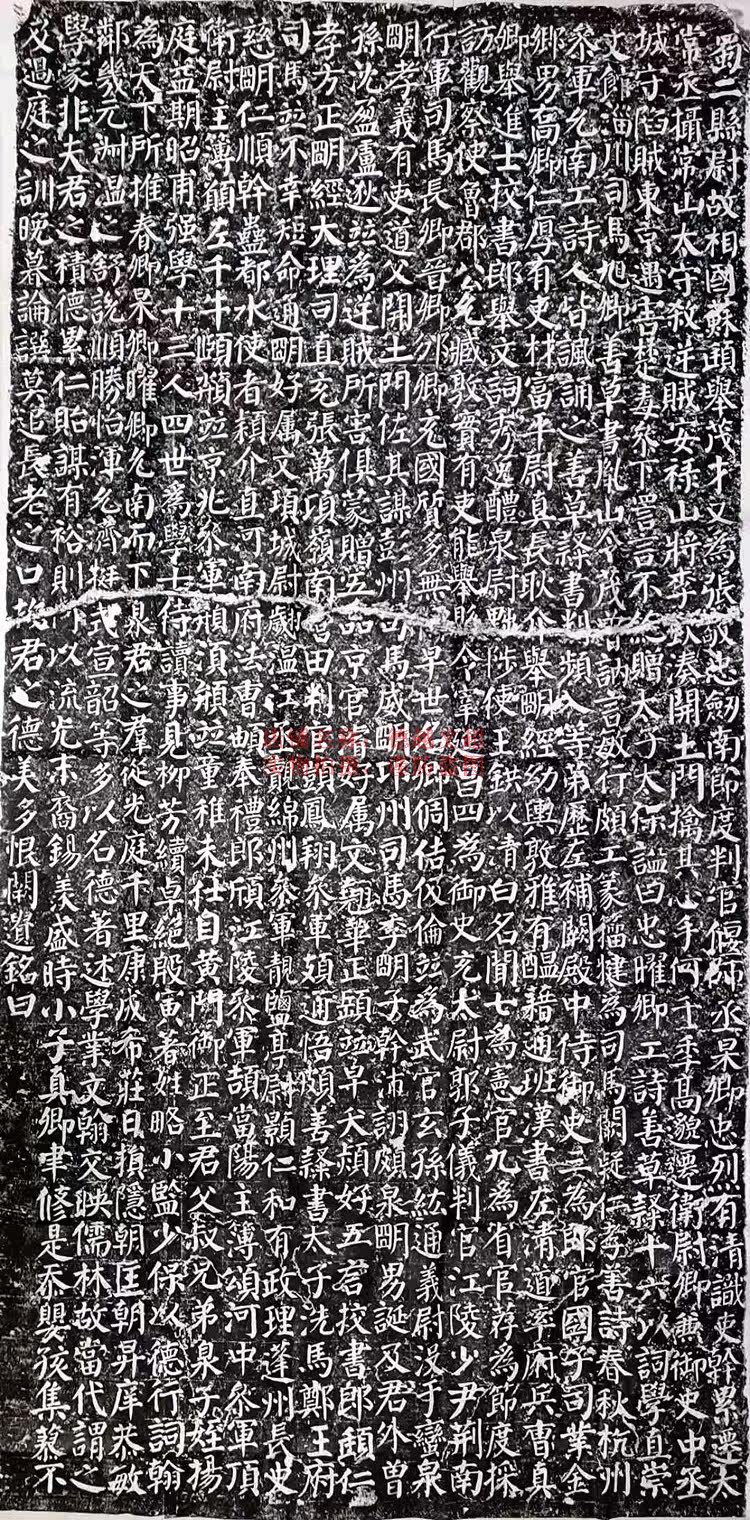 蜀二縣尉故相國蘇頲舉茂才又為張敬忠劒南節度判官偃師丞杲卿忠烈有清識吏幹累遷太
常丞攝常山太守殺逆賊安祿山將李欽湊開土門擒其心手何千年高邈遷衛尉卿兼御史中丞
城守陷賊東京遇害楚毒參下詈言不絕贈太子太保謚曰忠曜卿工詩善草隸十六以詞學直崇
文館淄川司馬旭卿善草書胤山令茂曾訥言敏行頗工篆籒犍為司馬闕疑仁孝善詩春秋杭州
參軍允南工詩人皆諷誦之善草隸書判頻入等第歷左補闕殿中侍御史三為郎官國子司業金
鄉男喬卿仁厚有吏材富平尉真長耿介舉明經幼輿敦雅有醞藉通班漢書左清道率府兵曹真
卿舉進士挍書郎舉文詞秀逸醴泉尉黜陟使王鉷以清白名聞七為憲官九為省官荐為節度採
訪觀察使魯郡公允臧敦實有吏能舉縣令宰延昌四為御史充太尉郭子儀判官江陵少尹荆南
行軍司馬長卿晉卿邠卿充國質多無祿早世名卿倜佶伋倫並為武官玄孫紘通義尉沒于蠻泉
明孝義有吏道父開土門佐其謀彭州司馬威明邛州司馬季明子幹沛詡頗泉明男誕及君外曾
孫沈盈盧逖並為逆賊所害俱蒙贈五品京官濬好属文翹華正頤並早夭頍好五言挍書郎頲仁
孝方正明經大理司直充張萬頃嶺南營田判官顗鳳翔參軍頍通悟頗善隸書太子洗馬鄭王府
司馬並不幸短命通明好属文項城尉翽溫江丞覿綿州參軍靚鹽亭尉顥仁和有政理蓬州長史
慈明仁順幹蠱都水使者穎介直河南府法曹頔奉禮郎頎江陵參軍頡當陽主簿頌河中參軍頂
衛尉主簿頟左千牛頤頫並京兆參軍頯須頖並童稚未仕自黄門御正至君父叔兄弟泉子姪揚
庭益期昭甫强學十三人四世為學士侍讀事見柳芳續卓絕殷寅著姓略小監少保以德行詞翰
為天下所推春卿杲卿曜卿允南而下泉君之羣從光庭千里康成希莊日損隱朝匡朝昇庠恭敏
鄰幾元淑温之舒說順勝怡渾允濟挺式宣韶等多以名德著述學業文翰交映儒林故當代謂之
學家非夫君之積德累仁貽謀有裕則何以流光末裔錫羡盛時小子真卿聿修是忝嬰孩集蓼不
及過庭之訓晚暮論譔莫追長老之口故君之德美多恨闕遺銘曰